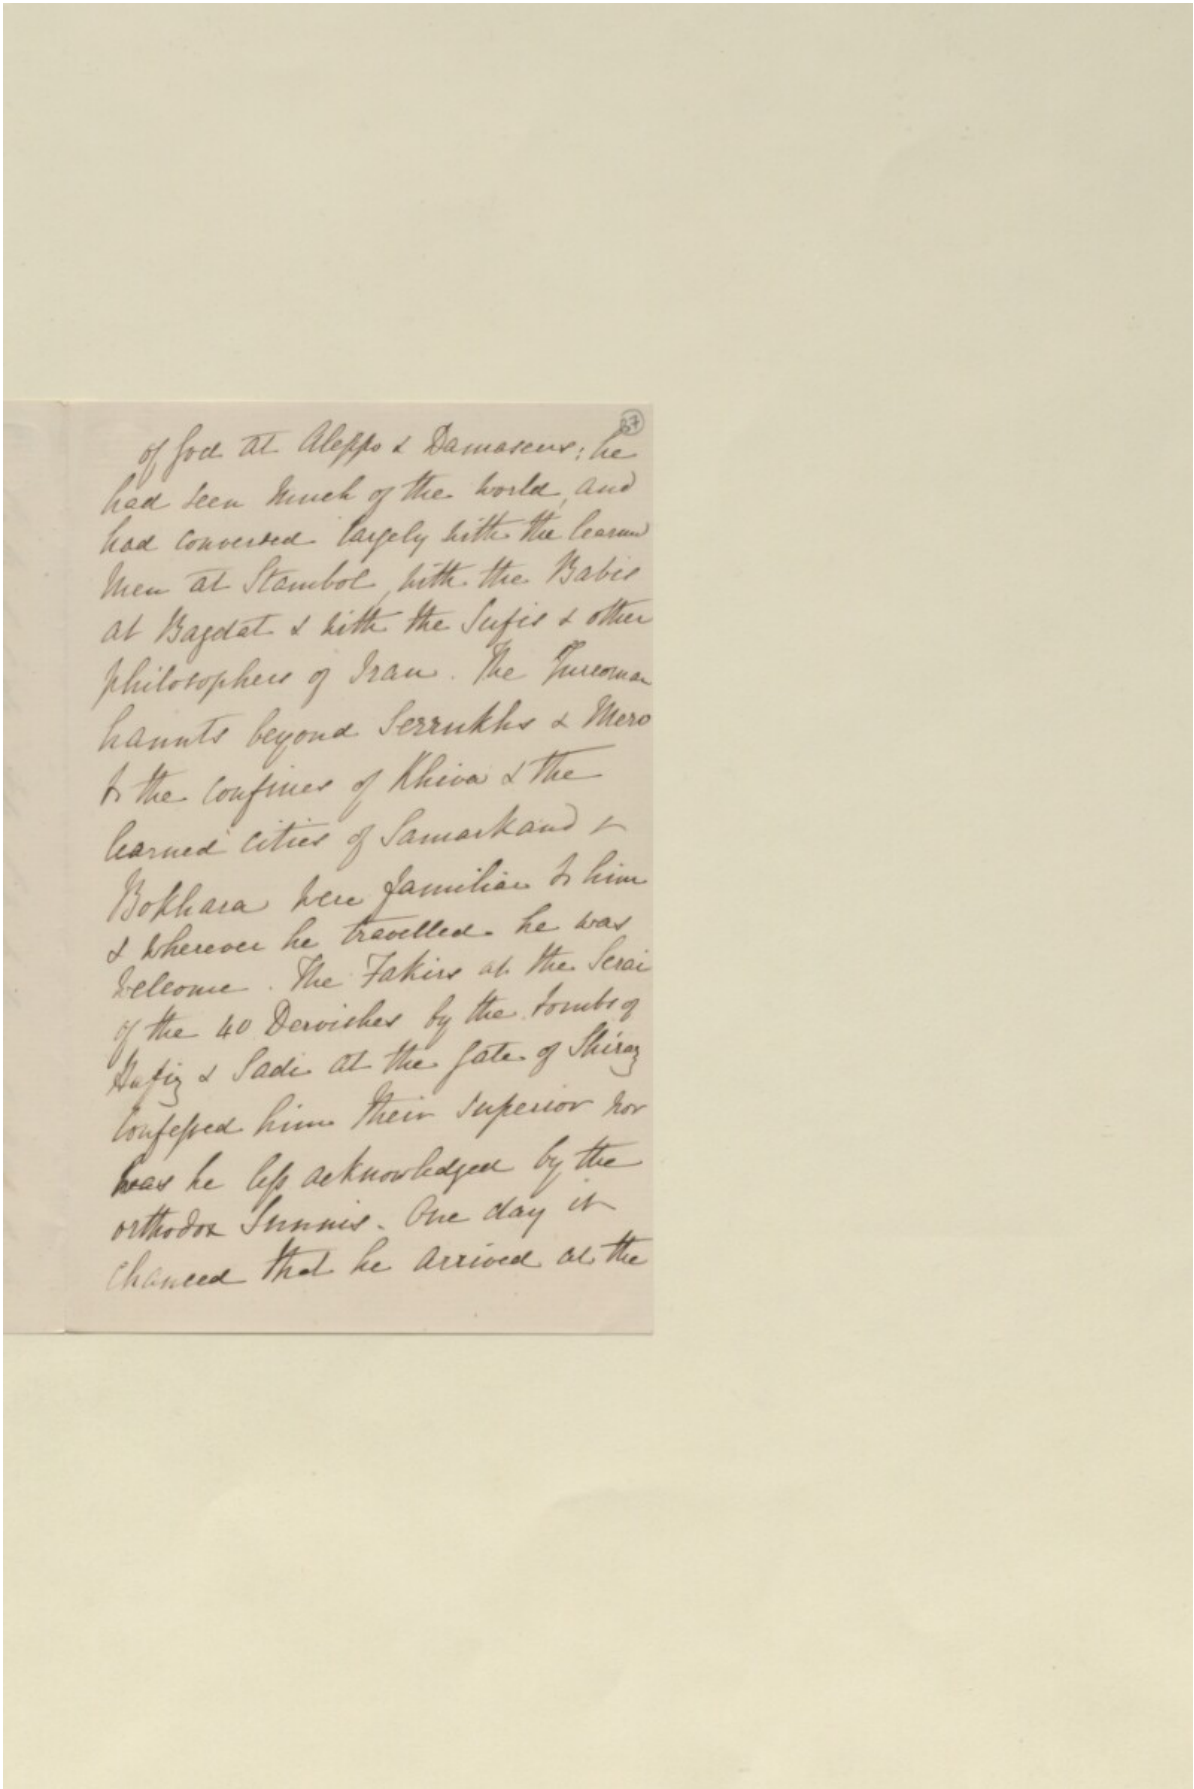 37
of God at Aleppo & Damascus; he
had seen much of the world, and
had conversed largely with the learned
men at Stambol, with the Babis
at Bagdat & with the Sufis & other
philosophers of Iran. The Turcoman
haunts beyond Serrukhs & Merv
to the confines of Khiva & the
learned cities of Samarkand &
Bokhara were familiar to him
& wherever he travelled he was
welcome. The Fakirs at the Serai
of the 40 Dervishes by the tombs of
Hafiz & Sadi at the gate of Shiraz
confessed him their superior nor
was he less acknowledged by the
orthodox Sunnis. One day it
chanced that he arrived at the